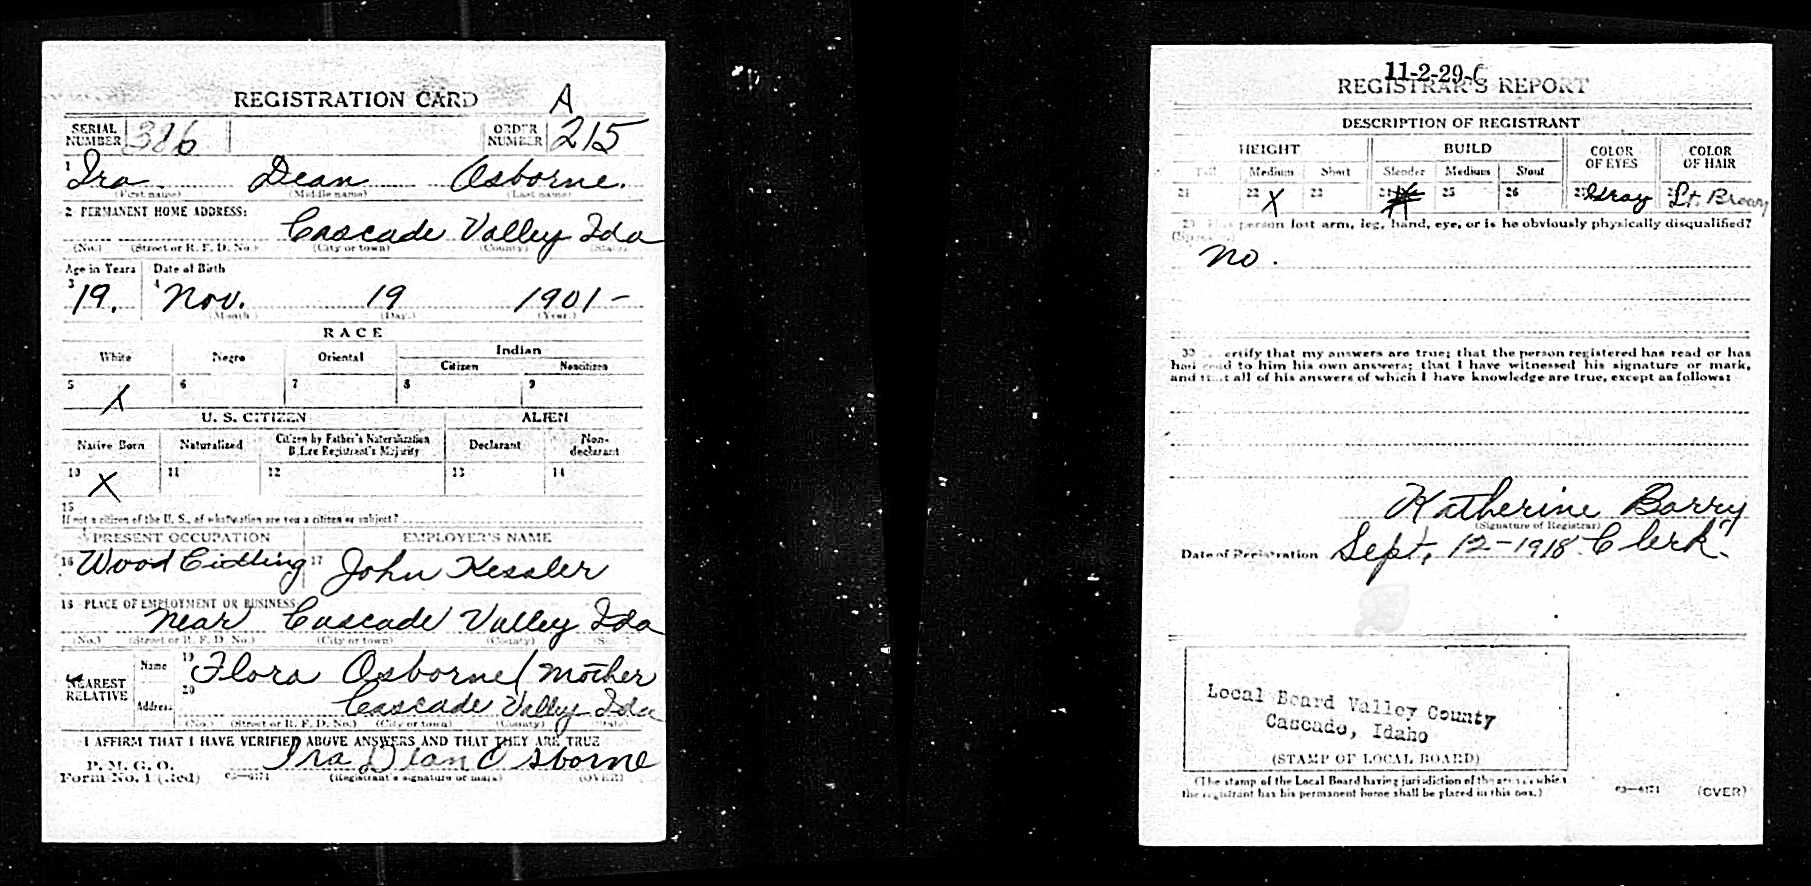 REGISTRATION CARD A
SERIAL NUMBER 386 ORDER NUMBER 215
1 Ira Dean Osborne.
(First name) (Middle name) (Last name)
2 PERMANENT HOME ADDRESS:
Cascade Valley Ida
(No.) (Street or R. F. D. No.) (City or town) (County) (State)
Age in Years Date of Birth
3 19. 4 Nov. 19 1901-
(Month.) (Day.) (Year.)
RACE
White Negro Oriental Indian
Citizen Noncitizen
5 X 6 7 8 9
U. S. CITIZEN ALIEN
Native Born Naturalized Citizen by Father's Naturalization Before Registrant's Majority Declarant Non-declarant
10 X 11 12 13 14
15
If not a citizen of the U. S., of what nation are you a citizen or subject?
PRESENT OCCUPATION EMPLOYER'S NAME
16 Wood 17 John Kessler
18 PLACE OF EMPLOYMENT OR BUSINESS:
near Cascade Valley Ida
(No.) (Street or R. F. D. No.) (City or town) (County)
NEAREST RELATIVE Name 19 Flora Osborne / mother
Address 20 Cascade Valley Ida
(No.) (Street or R. F. D. No.) (City or town) (County) (State)
I AFFIRM THAT I HAVE VERIFIED ABOVE ANSWERS AND THAT THEY ARE TRUE
P. M. G. O.
Form No. 1 (Red) 03—6171 Ira Dean Osborne
(Registrant's signature or mark) (OVER)
11-2-29-C
REGISTRAR'S REPORT
DESCRIPTION OF REGISTRANT
HEIGHT BUILD COLOR OF EYES COLOR OF HAIR
Tall Medium Short Slender Medium Stout
21 22 X 23 24 X 25 26 27 Gray 28 Lt. Brown
29 Has person lost arm, leg, hand, eye, or is he obviously physically disqualified?
(Specify.)
no.
30 I certify that my answers are true; that the person registered has read or has
had read to him his own answers; that I have witnessed his signature or mark,
and that all of his answers of which I have knowledge are true, except as follows:
Katherine Barry
(Signature of Registrar)
Date of Registration Sept, 12-1918 Clerk.
Local Board Valley County
Cascade, Idaho
(STAMP OF LOCAL BOARD)
(The stamp of the Local Board having jurisdiction of the area in which
the registrant has his permanent home shall be placed in this box.)
03—6171 (OVER)